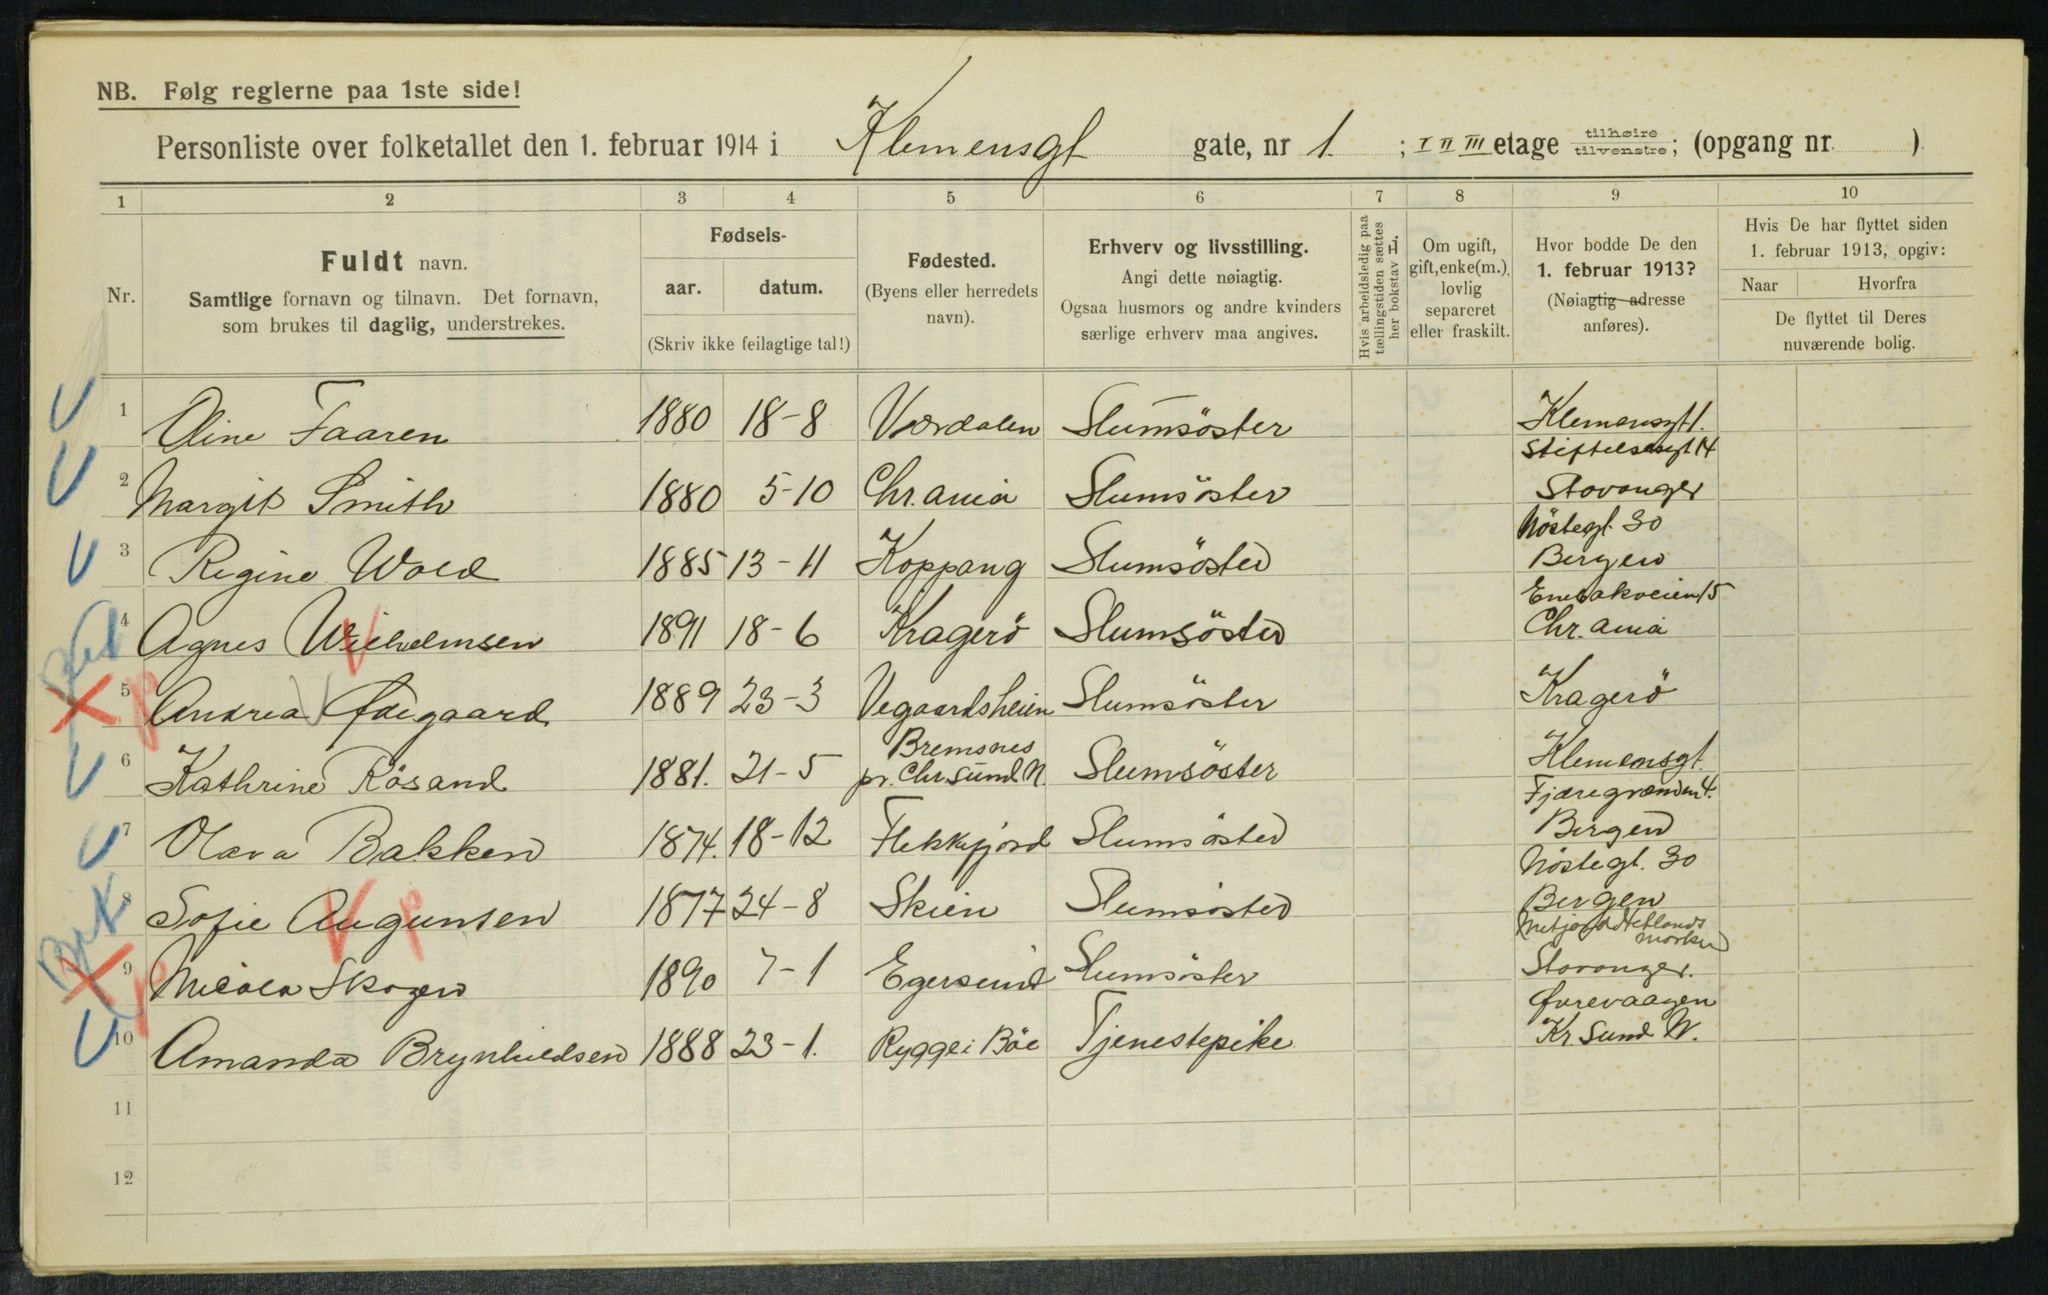 NB. Følg reglerne paa 1ste side!
Personliste over folketallet den 1. februar 1914 i Klemensgt gate, nr 1. ; I II III etage tilhøire tilvenstre; (opgang nr )
1 2 3 4 5 6 7 8 9 10
Nr.
Fuldt navn.
Samtlige fornavn og tilnavn. Det fornavn,
som brukes til daglig, understrekes.
Fødsels-
aar. datum.
(Skriv ikke feilagtige tal!)
Fødested.
(Byens eller herredets
navn).
Erhverv og livsstilling.
Angi dette nøiagtig.
Ogsaa husmors og andre kvinders
særlige erhverv maa angives.
Hvis arbeidsledig paa
tællingstiden sættes
her bokstav L.
Om ugift,
gift, enke(m.),
lovlig
separeret
eller fraskilt.
Hvor bodde De den
1. februar 1913?
(Nøiagtig adresse
anføres).
Hvis De har flyttet siden
1. februar 1913, opgiv:
Naar Hvorfra
De flyttet til Deres
nuværende bolig.
1 Oline Faaren 1880 18-8 Værdalen Slumsöster Klemensgt 1.
Stiftelsesgt 14
2 Margit Smith 1880 5-10 Chr.ania Slumsöster Stavanger
Nöstegt. 30
3 Regine Wold 1885 13-11 Koppang Slumsöster Bergen
Enebakveien 15
4 Agnes Wilhelmsen 1891 18-6 Kragerö Slumsöster Chr.ania
5 Andrea Ødegaard 1889 23-3 Vegaardsheien Slumsöster Kragerö
6 Kathrine Rösand 1881. 21-5 Bremsnes
pr. Chr.sund N. Slumsöster Klemensgt.
Fjæregrænden 4.
7 Olava Bakken 1874. 18-12 Flekkefjord Slumsöster Bergen
Nöstegt. 30
8 Sofie Augunsen 1877 24-8 Skien Slumsöster Bergen
9 Skogen 1890 7-1 Egersund Slumsöster Stavanger.
10 Amanda Brynhildsen 1888 23-1. Rygge i Böe Tjenestepike Kr.sund N.
11
12